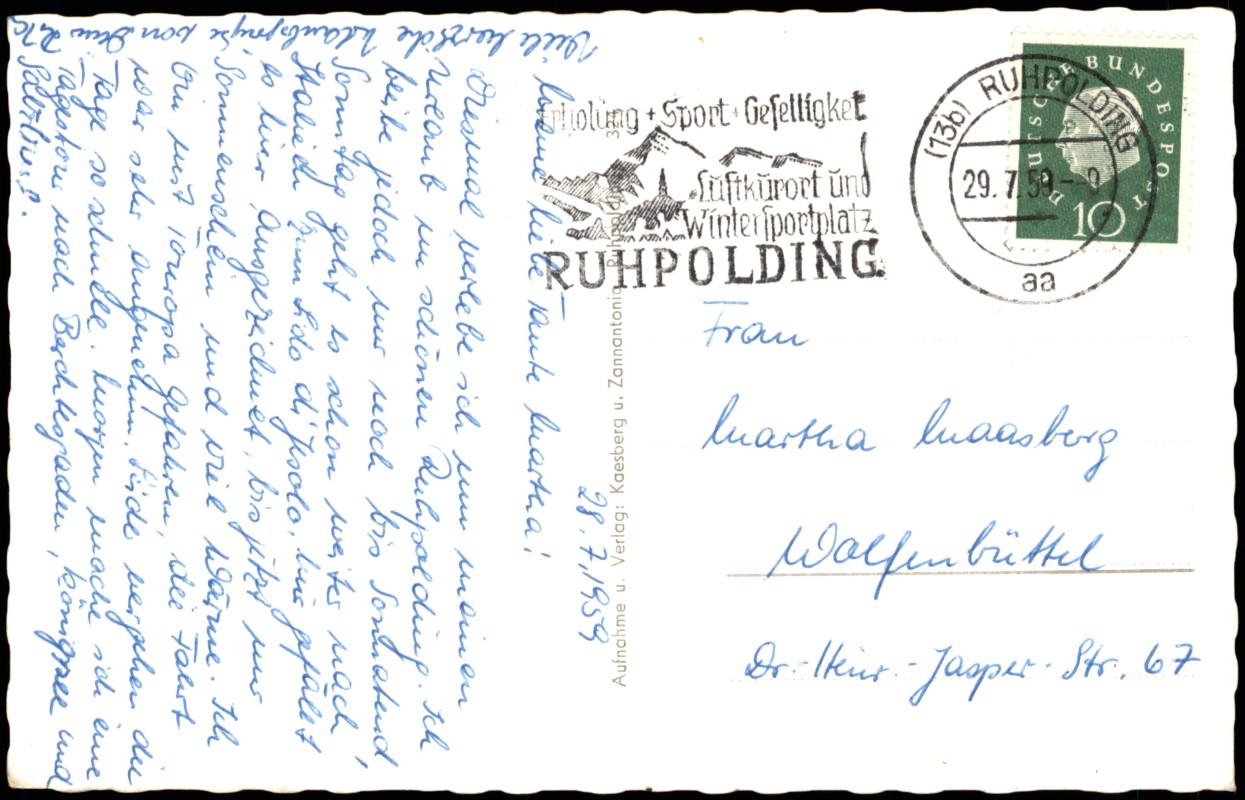 28.7.1959
Meine liebe Tante Martha!
Diesmal verlebe ich nun meinen
Urlaub im schönen Ruhpolding. Ich
bleibe jedoch nur noch bis Sonnabend,
Sonntag geht es schon weiter nach
Italien zum Lido di Jesolo. Mir gefällt
es hier ausgezeichnet, bis jetzt nur
Sonnenschein und viel Wärme. Ich
bin mit Touropa gefahren, die Fahrt
war sehr angenehm. Leider vergehen die
Tage so schnell. Morgen mache ich eine
Tagestour nach Berchtesgaden, Königssee und
Salzburg.
Viele herzliche Urlaubsgrüße von
Aufnahme u. Verlag: Kaesberg u. Zannantonio, Ruhpolding
Erholung + Sport + Geselligkeit
Luftkurort und
Wintersportplatz
RUHPOLDING
(13b) RUHPOLDING
29.7.59.--9
aa
DEUTSCHE BUNDESPOST
10
Frau
Martha Maasberg
Wolfenbüttel
Dr.-Heinr.-Jasper-Str. 67